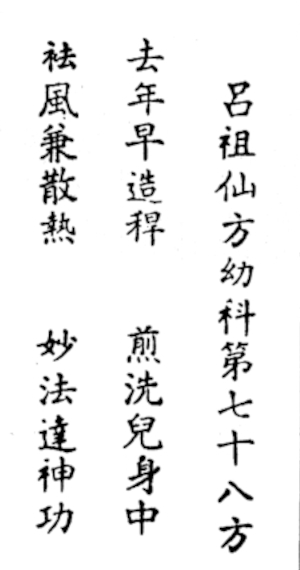 呂祖仙方幼科第七十八方
去年早造稈 煎洗兒身中
祛風兼散熱 妙法達神功